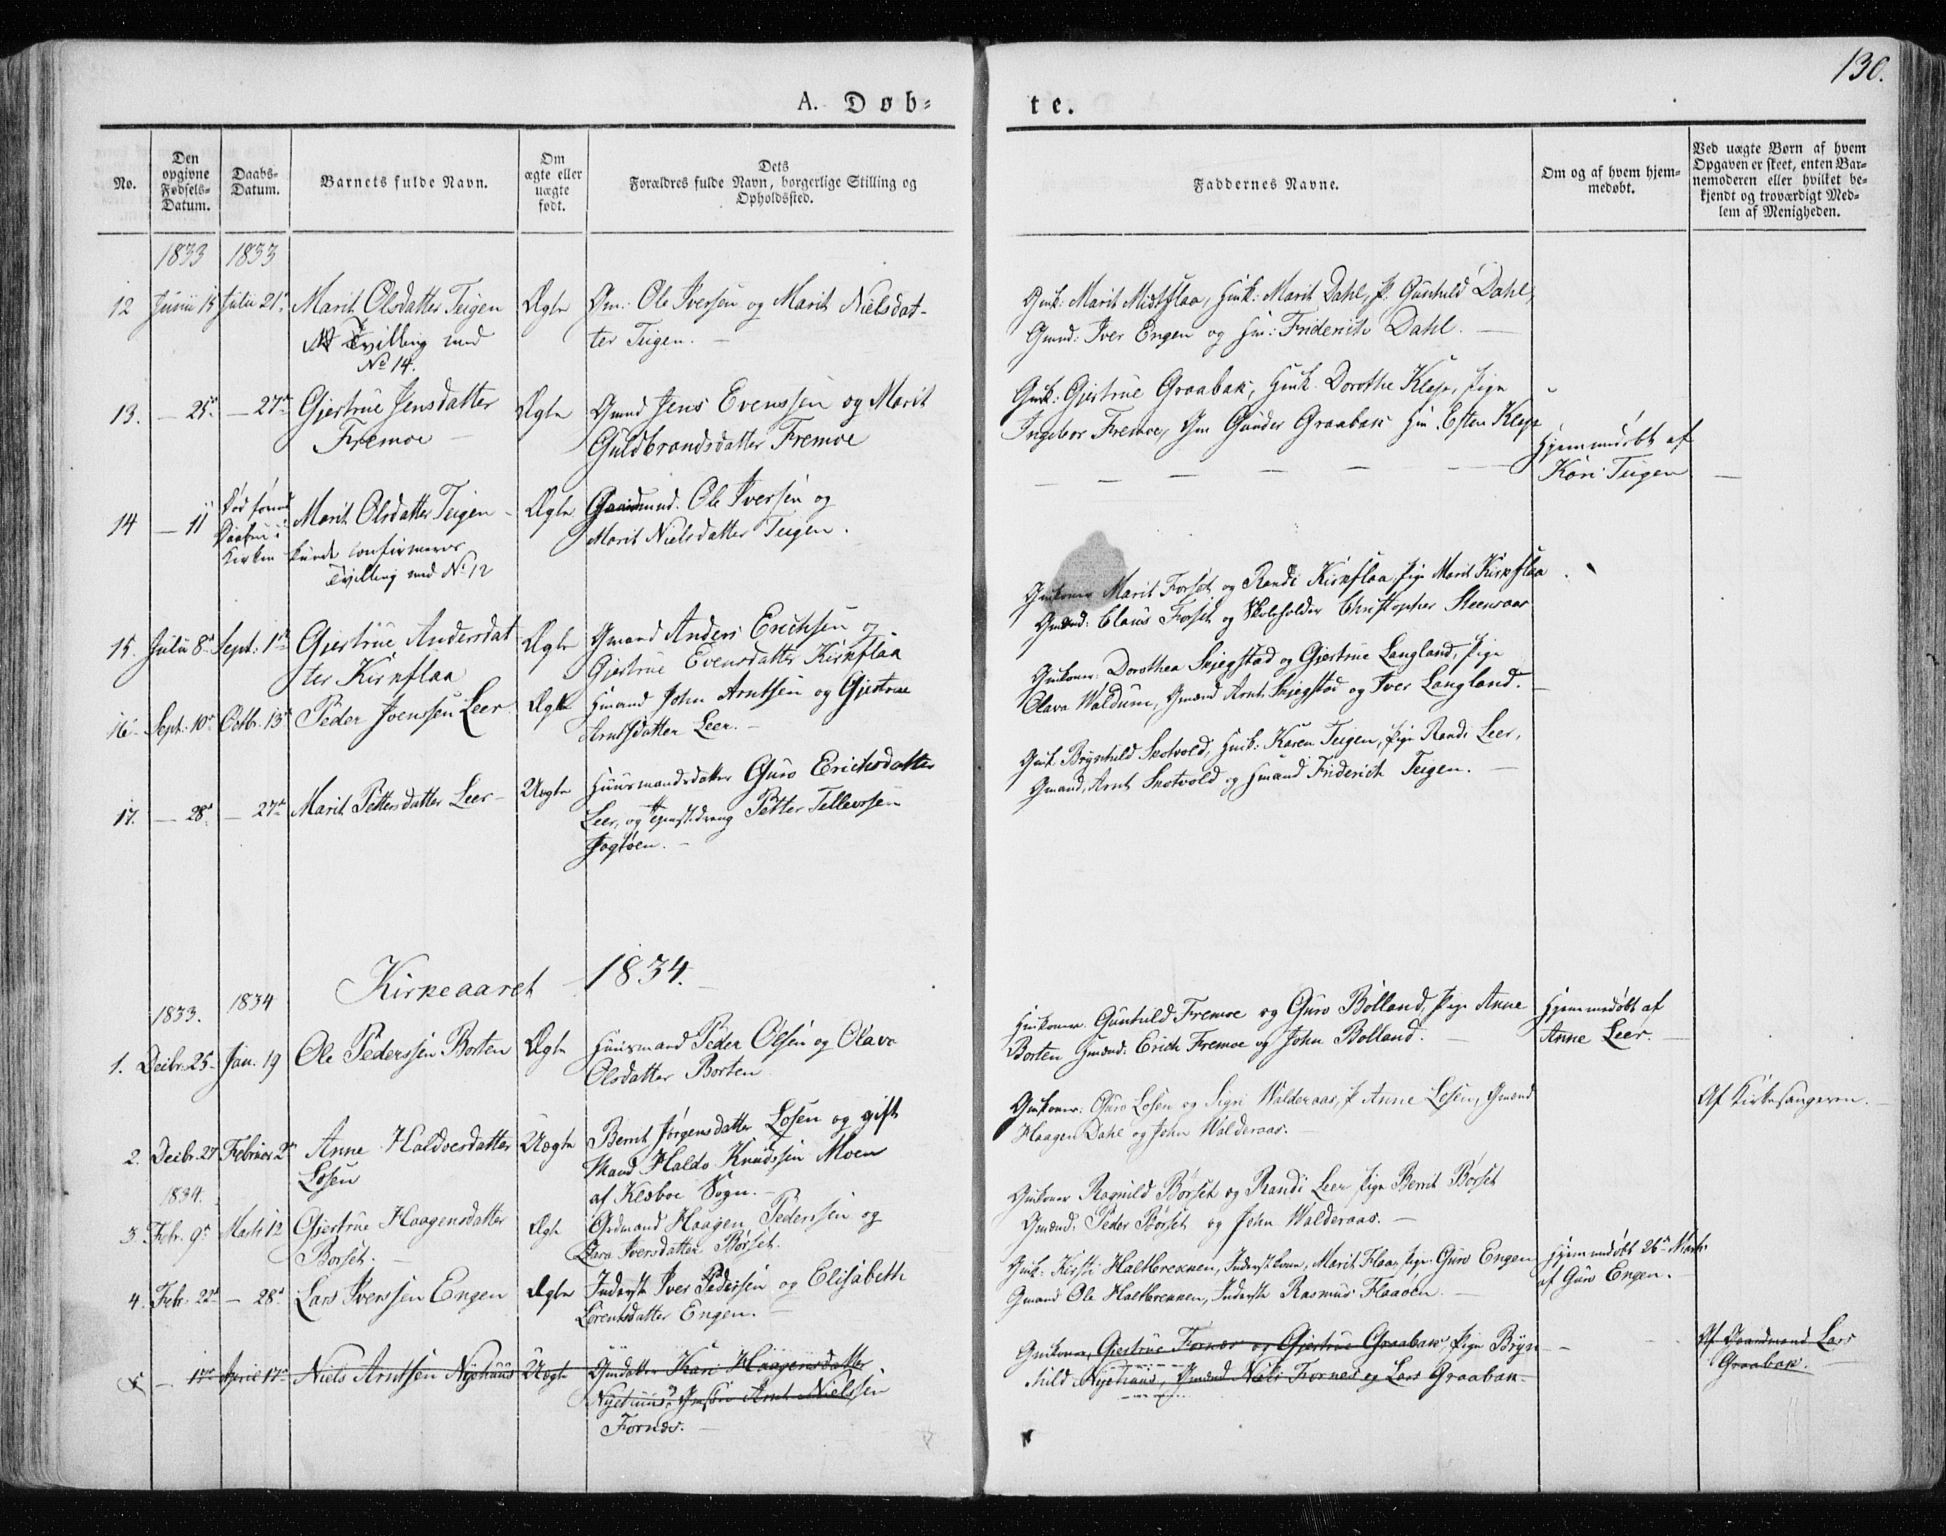 130.
A. Døb=
te.
No.
Den opgivne Fødsels-Datum.
Daabs-Datum.
Barnets fulde Navn.
Om ægte eller uægte født.
Dets Forældres fulde Navn, borgerlige Stilling og Opholdssted.
Faddernes Navne.
Om og af hvem hjemmedøbt.
Ved uægte Børn af hvem Opgaven er skeet, enten Barnemoderen eller hvilket bekjendt og troværdigt Medlem af Menigheden.
1833 1833
12 Junii 15 Julii 21. Marit Olsdatter Teigen Ægte Gm: Ole Iversen og Marit Nielsdat-
Tvilling med ter Teigen.
No 14.
Gmk: Marit Midtflaa, Hmk: Marit Dahl, P. Gunhild Dahl,
Gmd: Iver Engen og Hm: Friderich Dahl.
13. — 25. — 27de Gjertrue Jensdatter Ægte Gmd Jens Evensen og Marit
Fremoe Guldbrandsdatter Fremoe
Gmk: Gjertrue Graabak, Hmk. Dorothe Klep, Pige
Ingebor Fremoe, Gm Gunder Graabak Hm. Esten Klep
14 — 11 Død forind Daaben i Kirken Marit Olsdatter Teigen Ægte Gaardmand. Ole Iversen og
kunde confirmeres Marit Nielsdatter Teigen.
Tvilling med No 12
Hjemmedøbt af
Kari Teigen
15. Julii 8de Sept: 1ste Gjertrue Andersdat Ægte Gmand Anders Erichsen og
ter Kirkflaa Gjertrue Evensdatter Kirkflaa
Gmkoner Marit Forset og Randi Kirkflaa, Pige Marit Kirkflaa
Gmænd: Claus Forset og Skoleholder Christopher Steenraas
16. Sept: 10de Octbr. 13de Peder Joenssen Leer Ægte Hmand John Arntsen og Gjertrue
Arntsdatter Leer.
Gmkoner: Dorothea Skjegstad og Gjertrue Langland, Pige
Olava Waldum, Gmænd Arnt Skjegstad og Iver Langland.
17. — 28. — 27de Marit Pettersdatter Leer Uægte Huusmandsdatter Guro Erichsdatter
Leer, og Tjenstdreng Petter Tellevsen
Jagtøen.
Gmk. Brynhild Skotvold, Hmk: Karen Teigen, Pige Randi Leer,
Gmand, Arnt Skotvold og Hmand Friderich Teigen.
Kirkeaaret 1834.
1833. 1834
1. Decbr. 25. Jan. 19 Ole Pederssen Borten Ægte Huusmand Peder Olsen og Olava
Olsdatter Borten
Hmkoner. Gunhild Fremoe og Guro Bolland, Pige Anne
Borten Gmænd: Erich Fremoe og John Bolland.
Hjemmedøbt af
Anne Leer.
2. Decbr. 27 Februar 2. Anne Haldoesdatter Uægte Berrit Jørgensdatter Losen og gift
Losen Mand Haldo Knudssen Moen
af Klæboe Sogn.
Gmkoner: Guro Losen og Sigri Walderaas, P. Anne Losen, Gmænd
Haagen Dahl og John Walderaas.
Af Kirkesangeren.
1834.
3. Febr. 9de Marts 12 Gjertrue Haagensdatter Ægte Grdmand Haagen Pedersen og
Borset. Iversdatter Børset.
Gmkoner Ragnild Børset og Randi Leer Pige Berrit Børset
Gmænd: Peder Børset og John Walderaas.
4. Febr. 22de — 28. Lars Iverssen Engen Ægte Inderst Iver Pedersen og Elisabeth
Lorentsdatter Engen.
Gmk: Kirsti Haltbrekken, Inderstkone, Marit Flaa, Pige. Guro Engen
Gmand Ole Haltbrekken, Inderste Rasmus Flaaøen.
Hjemmedøbt 26de Marts
af Guro Engen.
5 — 17de April 17de Niels Arntsen Nyehuus Uægte Gmdatter Kari Haagensdatter
Nyehuus, Arnt Nielssen
Fornes.
Gmkoner, Gjertrue Fornes og Gjertrue Graabak, Pige Bryn
hild Nyehuus, Gmænd Niels Fornes og Lars Graabak
Af Gaardmand Lars
Graabak.